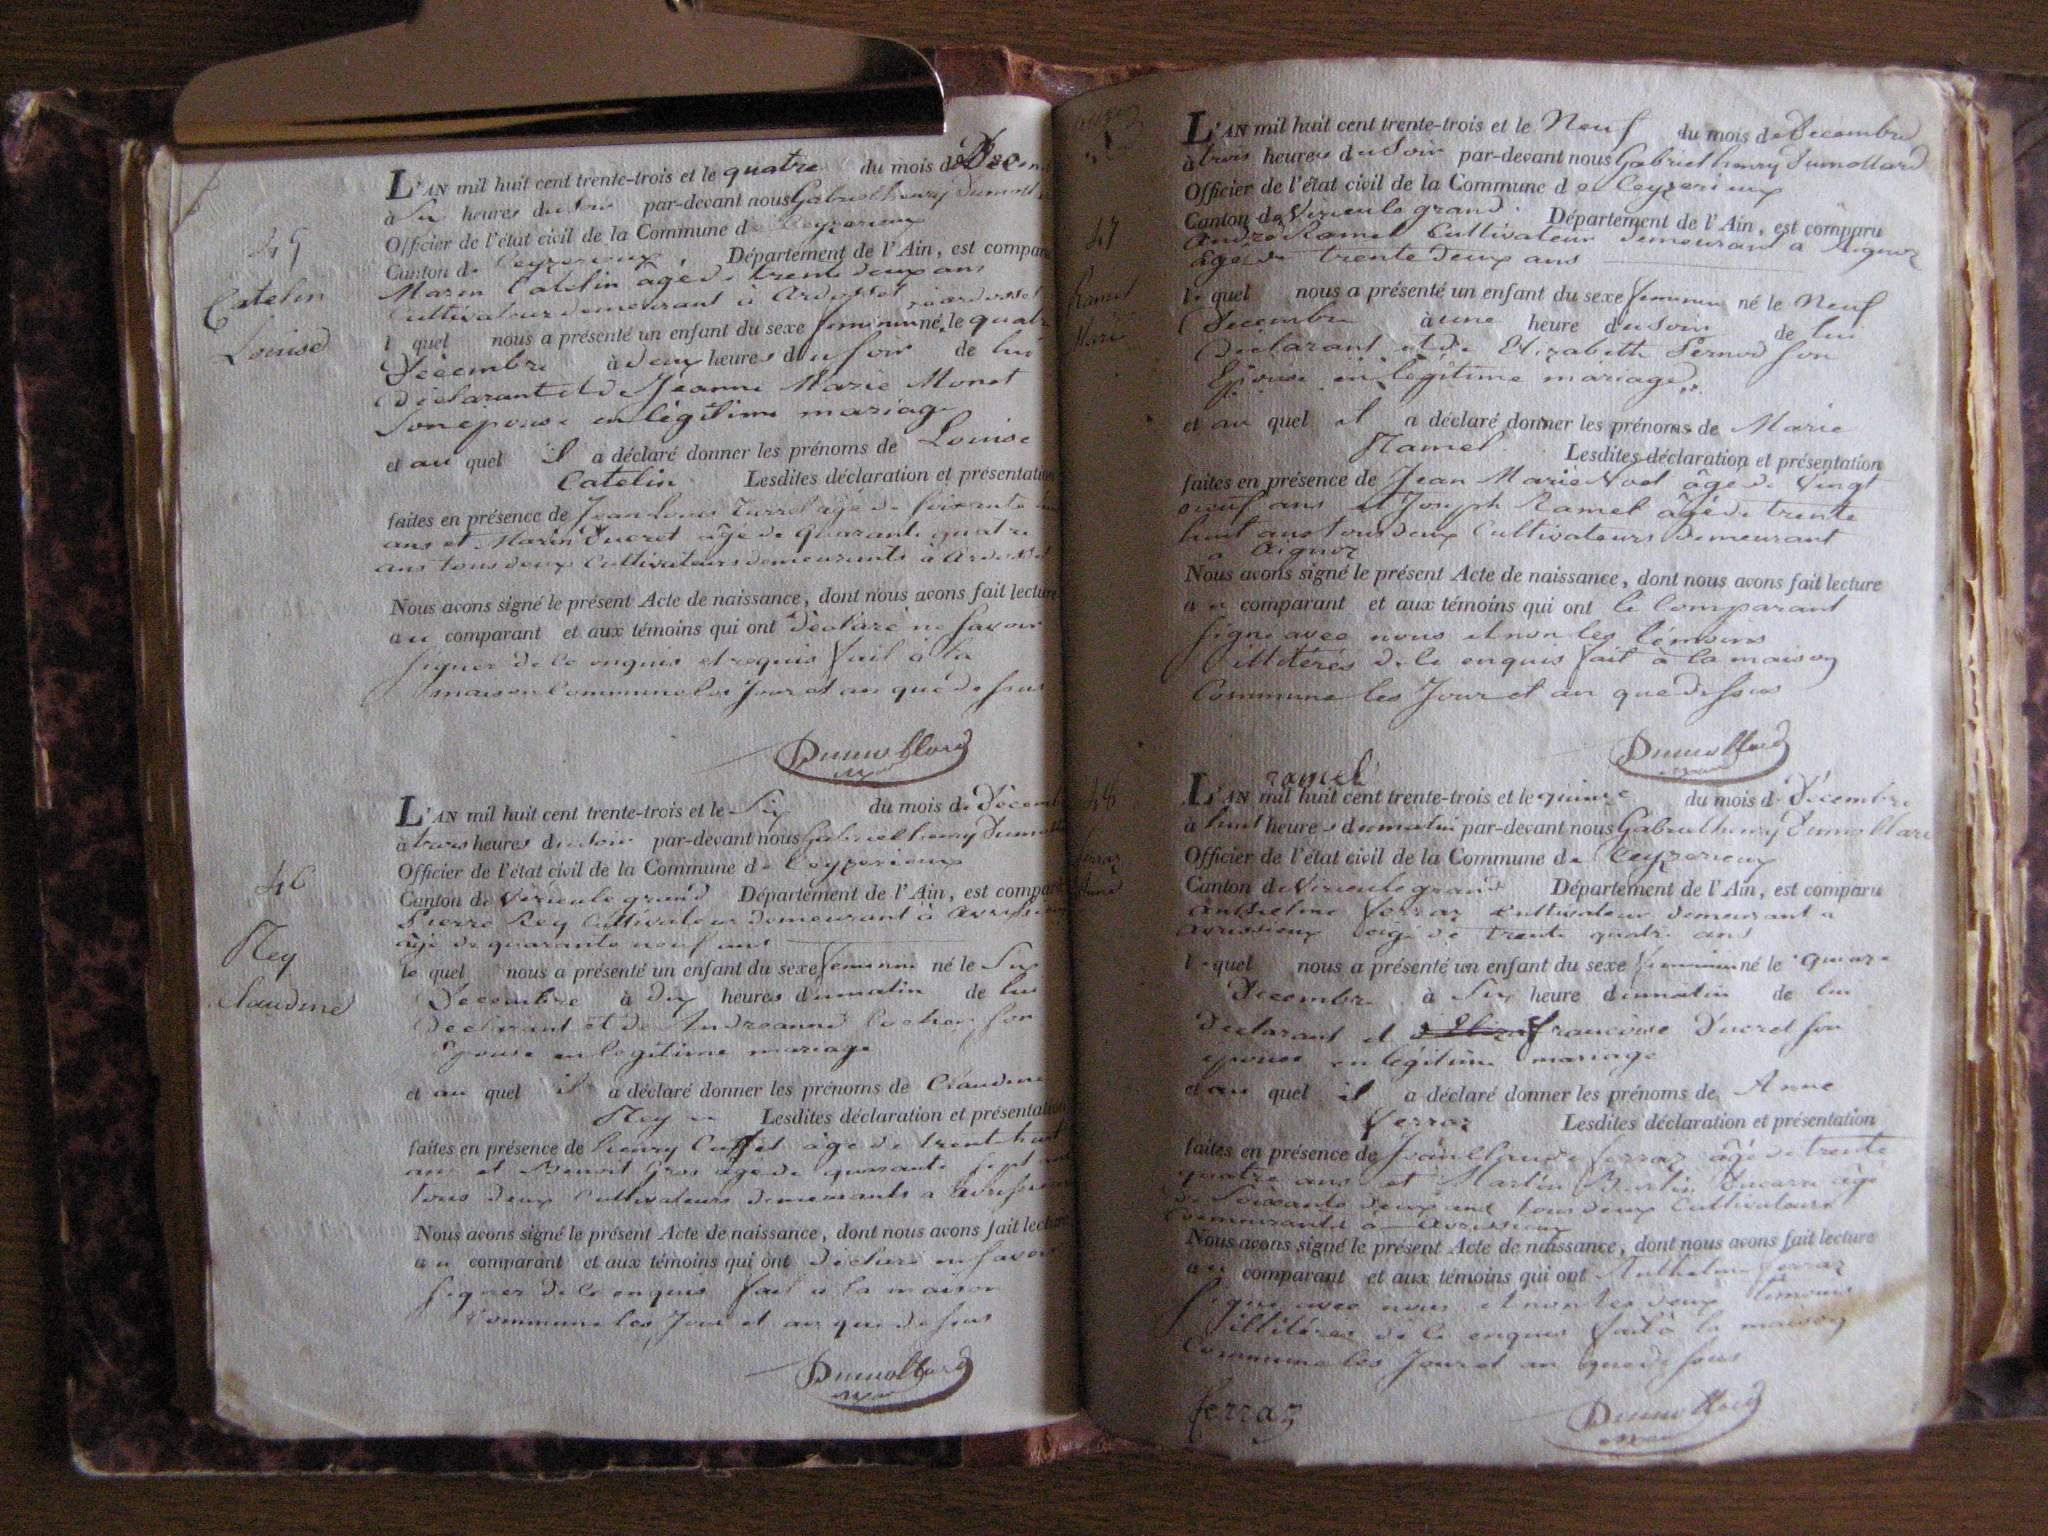 L'AN mil huit cent trente-trois et le quatre du mois de Dec
à Six heures du Soir par-devant nous Gabriel henry Dumoll
Officier de l'état civil de la Commune de Ceyzerieux
Canton de Ceyzerieux Département de l'Ain, est compar
Marin Catelin agé de trente deux ans
Cultivateur demeurant à Ardosset
45
Catelin
Louise
l quel nous a présenté un enfant du sexe feminin né le quatr
Décembre à deux heures du soir de lui
Déclarant et de Jeanne Marie Monet
Son epouse en légitime mariage
et au quel il a déclaré donner les prénoms de Louise
Catelin Lesdites déclaration et présentation
faites en présence de Jean Louis agé de soixante
ans et Marin Ducret âgé de quarante quatre
ans tous deux Cultivateurs demeurants à Ardosset
Nous avons signé le présent Acte de naissance, dont nous avons fait lecture
au comparant et aux témoins qui ont déclaré ne savoir
signer de ce enquis et requis fait à la
maison Commune les Jour et an que dessus
Dumollard
L'AN mil huit cent trente-trois et le Six du mois de Décemb
à trois heures du soir par-devant nous Gabriel henry Dumoll
Officier de l'état civil de la Commune de Ceyzerieux
46
Canton de Virieu le grand Département de l'Ain, est compar
Pierre Rey Cultivateur demeurant à
âgé de quarante neuf ans
Rey
Claudine
le quel nous a présenté un enfant du sexe feminin né le Six
Décembre à Dix heures du matin de lui
Déclarant et de Son
Epouse en légitime mariage
et au quel il a déclaré donner les prénoms de Claudine
Rey Lesdites déclaration et présentation
faites en présence de henry âgé de trente huit
ans et Benoit Gros âgé de quarante sept ans
tous deux Cultivateurs demeurants a
Nous avons signé le présent Acte de naissance, dont nous avons fait lecture
au comparant et aux témoins qui ont déclaré ne savoir
signer de ce enquis fait a la maison
Commune les Jour et an que dessus
Dumollard
L'AN mil huit cent trente-trois et le Neuf du mois de Décembre
à trois heures du Soir par-devant nous Gabriel henry Dumollard
Officier de l'état civil de la Commune de Ceyzerieux
47
Canton de Virieu le grand Département de l'Ain, est comparu
André Ramel Cultivateur demeurant à Aignoz
âgé de trente deux ans
Ramel
Marie
le quel nous a présenté un enfant du sexe feminin né le Neuf
Décembre à une heure du soir de lui
Déclarant et de Elizabeth Pernod son
Epouse en légitime mariage
et au quel il a déclaré donner les prénoms de Marie
Ramel. Lesdites déclaration et présentation
faites en présence de Jean Marie âgé de Vingt
neuf ans et Joseph Ramel âgé de trente
huit ans tous deux Cultivateurs demeurant
a Aignoz
Nous avons signé le présent Acte de naissance, dont nous avons fait lecture
au comparant et aux témoins qui ont le Comparant
signé avec nous et non les témoins
illitérés de ce enquis fait à la maison
Commune les Jour et an que dessus
Dumollard
ramel
48
L'AN mil huit cent trente-trois et le quinze du mois de Décembre
à huit heures du matin par-devant nous Gabriel henry Dumollard
Officier de l'état civil de la Commune de Ceyzerieux
Ferraz
Anne
Canton de Virieu le grand Département de l'Ain, est comparu
Anthelme Ferraz Cultivateur demeurant a
Avrissieux agé de trente quatre ans
l quel nous a présenté un enfant du sexe feminin né le quinze
Décembre à Six heure du matin de lui
Déclarant et francoise Ducret son
epouse en légitime mariage
et au quel il a déclaré donner les prénoms de Anne
Ferraz Lesdites déclaration et présentation
faites en présence de Jean Claude ferraz âgé de trente
quatre ans et Martin âgé
de Soixante deux ans tous deux Cultivateurs
demeurants à Avrissieux
Nous avons signé le présent Acte de naissance, dont nous avons fait lecture
au comparant et aux témoins qui ont Anthelme Ferraz
Signé avec nous et non les deux témoins
illitérés de ce enquis fait à la maison
Commune les Jour et an que dessus
ferraz
Dumollard